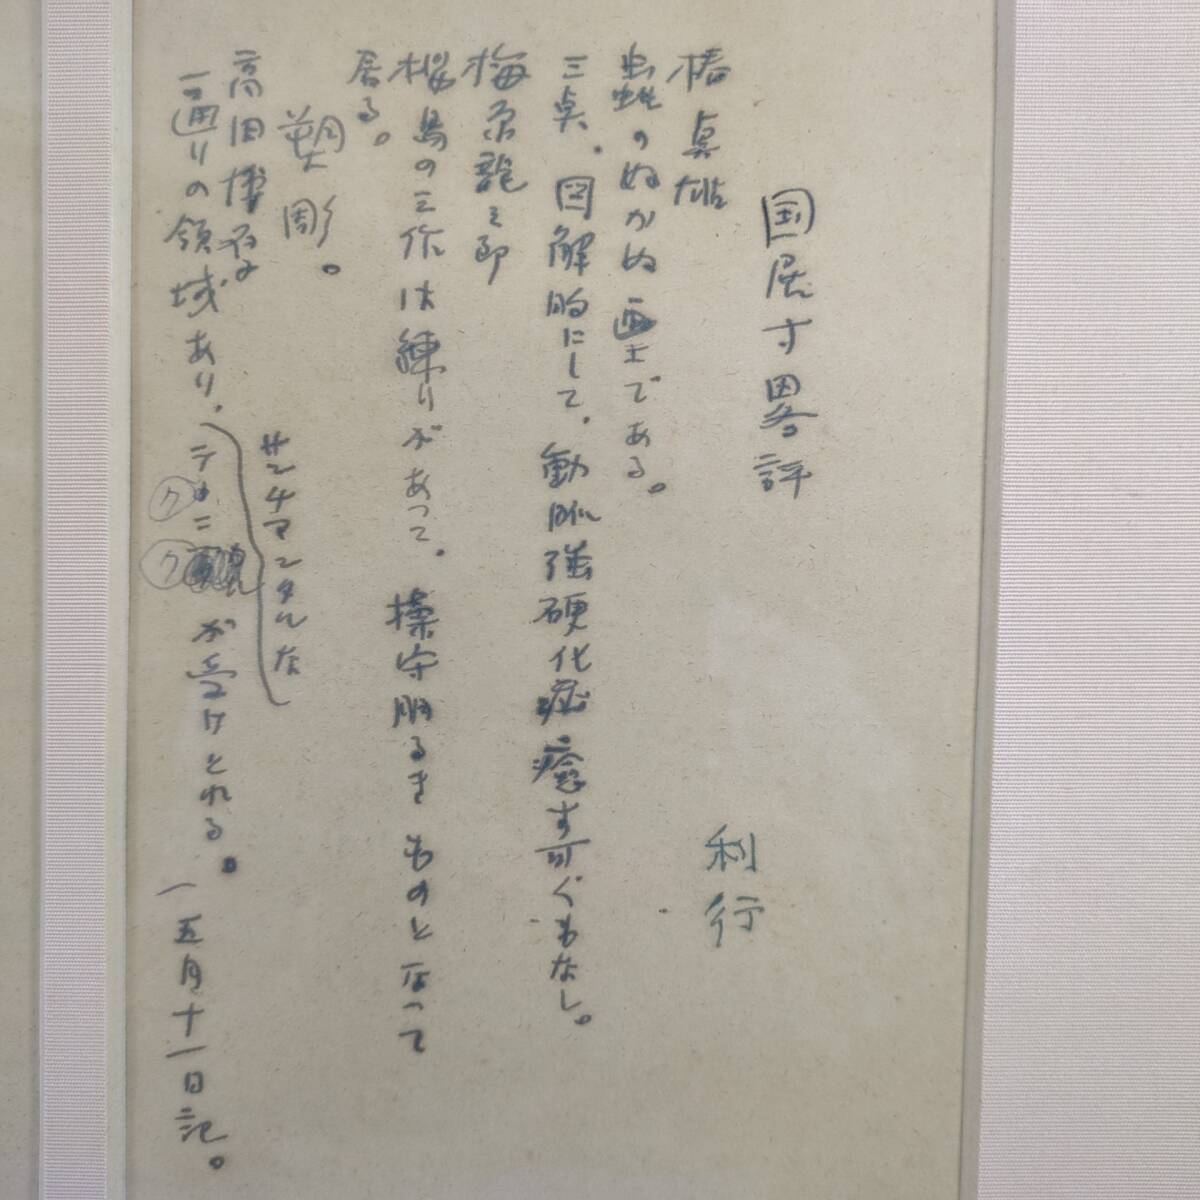 国展寸畧評
利行
椿貞雄
虫蛇のぬかぬ画土である。
三点、図解的にして、動脈強硬化症癒す可くもなし。
梅原龍三郎
桜島の三作は練りがあって、操守明るきものとなって
居る。
塑彫。
高田博厚
一通りの領域あり、サンチマンタルな
テクニクが受けとれる。(五月十一日記。